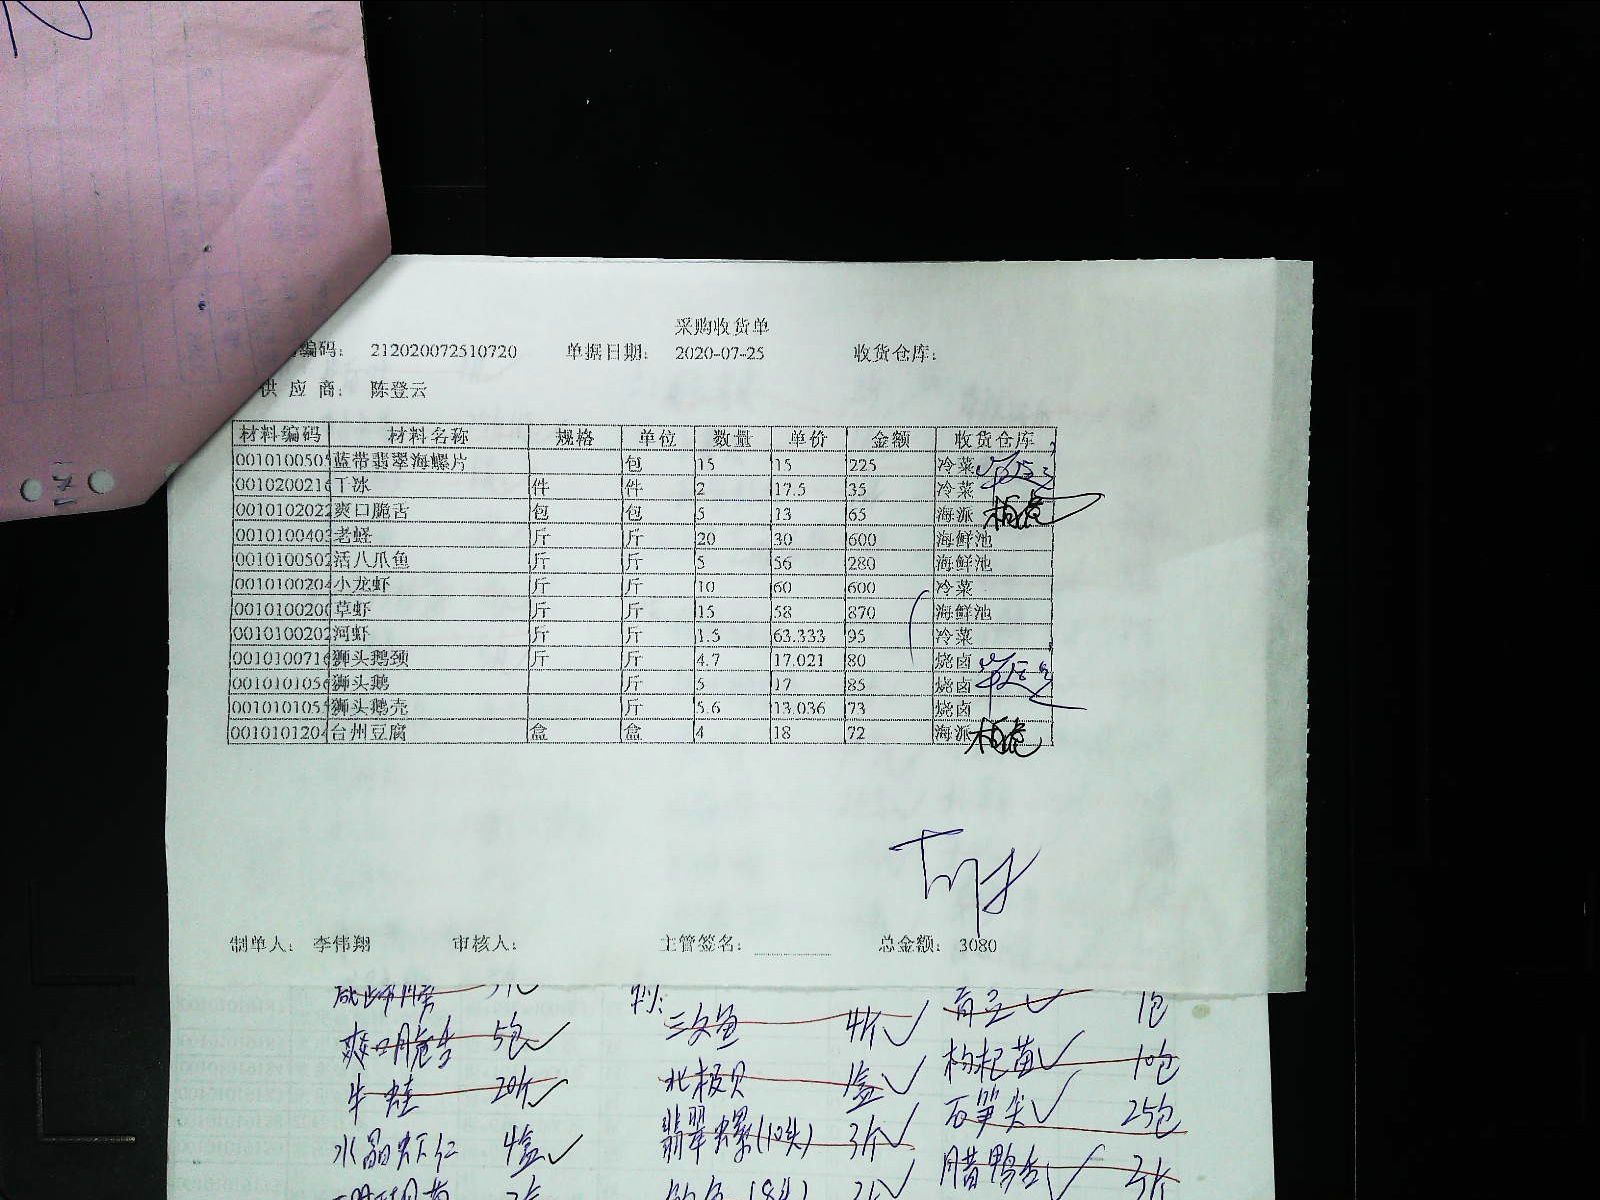 采购收货单
编码: 212020072510720 单据日期: 2020-07-25 收货仓库:
供 应 商: 陈登云
材料编码 材料名称 规格 单位 数量 单价 金额 收货仓库
0010100505 蓝带翡翠海螺片 包 15 15 225 冷菜
0010200216 干冰 件 件 2 17.5 35 冷菜
0010102022 爽口脆舌 包 包 5 13 65 海派
0010100403 老蛏 斤 斤 20 30 600 海鲜池
0010100502 活八爪鱼 斤 斤 5 56 280 海鲜池
0010100204 小龙虾 斤 斤 10 60 600 冷菜
0010100200 草虾 斤 斤 15 58 870 海鲜池
0010100202 河虾 斤 斤 1.5 63.333 95 冷菜
0010100716 狮头鹅颈 斤 斤 4.7 17.021 80 烧卤
0010101056 狮头鹅 斤 5 17 85 烧卤
0010101055 狮头鹅壳 斤 5.6 13.036 73 烧卤
0010101204 台州豆腐 盒 盒 4 18 72 海派
制单人: 李伟翔 审核人: 主管签名: 总金额: 3080
三文鱼 4斤 青豆 1包
爽口脆舌 5包 北极贝 1盒 枸杞苗 10包
牛蛙 20斤 翡翠螺(10头) 3斤 石笋尖 25包
水晶虾仁 4盒 腊鸭舌 3斤